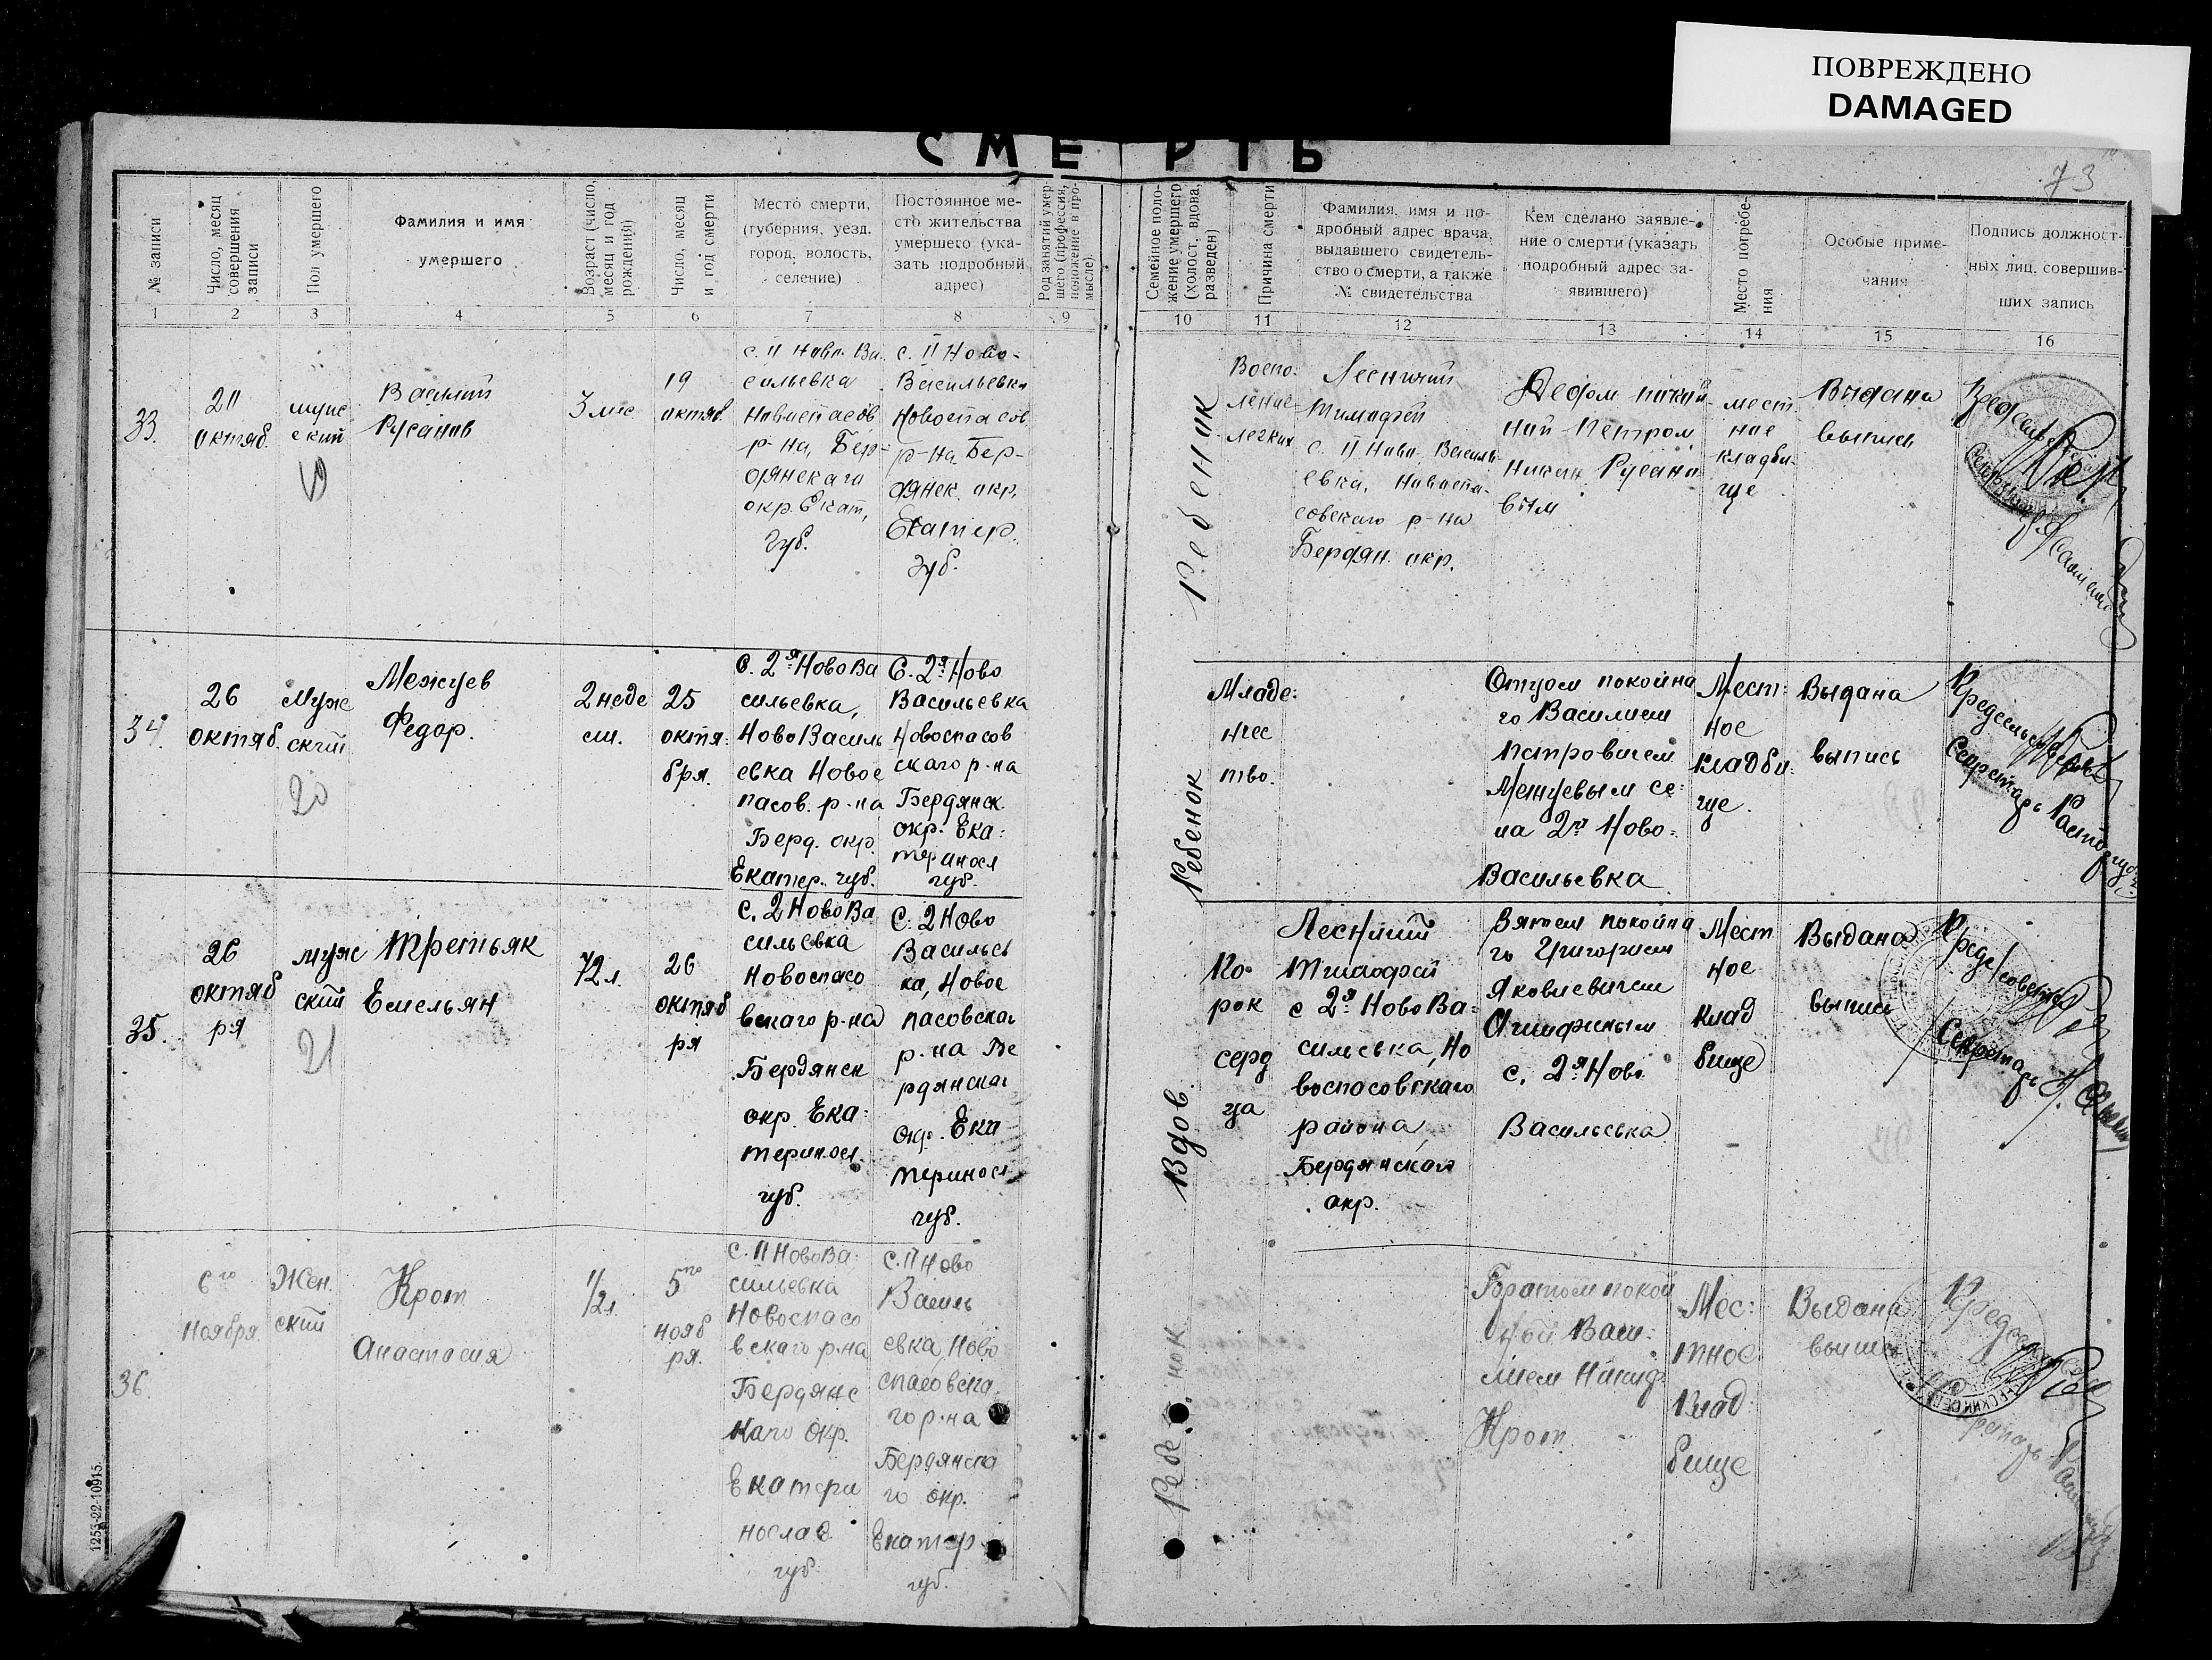 ПОВРЕЖДЕНО
DAMAGED
СМЕРТЬ
73
№ записи
Число, месяц
совершения
записи
Пол умершего
Фамилия и имя
умершего
Возраст (число,
месяц и год
рождения)
Число, месяц
и год смерти
Место смерти,
(губерния, уезд,
город, волость,
селение)
Постоянное ме-
сто жительства
умершего (ука-
зать подробный
адрес)
Род занятий умер-
шего (профессия,
положение в про-
мысле)
Семейное поло-
жение умершего
(холост, вдова,
разведен)
Причина смерти
Фамилия, имя и по-
дробный адрес врача,
выдавшего свидетель-
ство о смерти, а также
№ свидетельства
Кем сделано заявле-
ние о смерти (указать
подробный адрес за-
явившего)
Место погребе-
ния
Особые приме-
чания
Подпись должност-
ных лиц, совершив-
ших запись
1 2 3 4 5 6 7 8 9 10 11 12 13 14 15 16
33.
октяб.
мужс
ский
Василий
Русанов
3 мес
19
октяб.
с. II Ново-Ва
сильевка
Новоспасов
р-на, Бер-
дянскаго
окр. Екат,
губ.
с. II Ново-
Васильевка
Новоспасов
р-на Бер-
дянск. окр.
Екатер.
губ.
Ребенок
Воспо-
ление
легких
Леснихий
Тимофей
с. II Ново-Василь
евка, Новоспа-
совскаго р-на
Бердян. окр.
Дедом покой-
ный Петром
Никан. Русано
вым
мест-
ное
кладби-
ще
Выдана
выпись
34.
26
октяб.
Муж
ский
20
Межуев
Федор.
2 неде
ли.
25
октя:
бря.
с. 2я НовоВа
сильевка,
НовоВасиль
евка Новос
пасов. р-на
Берд. окр.
Екатер. губ.
С. 2я Ново
Васильевка
Новоспасов
скаго р-на
Бердянск.
окр. Ека:
теринос л
губ.
Ребенок
Младе:
нчес
тво.
Отцом покойна
го Василием
Петровичем
Межуевым се:
ла 2я Ново-
Васильевка
Мест:
ное
кладби:
ще.
Выдана
выпись
35.
26
октяб
ря
муж
ский
21
Третьяк
Емельян
72 л.
26
октяб
ря
с. 2 НовоВа
сильевка
Новоспасо
вскаго р-на
Бердянск
окр. Ека:
теринос л.
губ.
С. 2 Ново
Васильев
ка, Новос
пасовскаг
р-на Бе
рдянскаг
окр. Ека
теринос л
губ.
Вдов
По-
рок
серд
ца
Леснихий
Тимофей
с 2я НовоВа-
сильевка, Но
воспасовскаго
района,
Бердянскаго
окр.
Зятем покойна
го Григорием
Яковлевичем
с. 2я Ново
Васильевка
Мест
ное
клад
бище
Выдана
выпись
36.
6го
ноября.
Жен.
ский
Крот
Анастасия
1/2 л.
5го
нояб
ря.
с. II НовоВа:
сильевка
Новоспасо
вскаго р-на
Бердянс
каго окр.
Екатери
нослав
губ.
с. II Ново
Василь
евка, Ново
спасовска
го р-на
Бердянска
го окр.
Екатер.
губ.
Ребенок
Братом покой
ной Васи:
лием Никиф
Крот
Мес:
тное
клад
бище
Выдана
выпись
1253-22-10915.